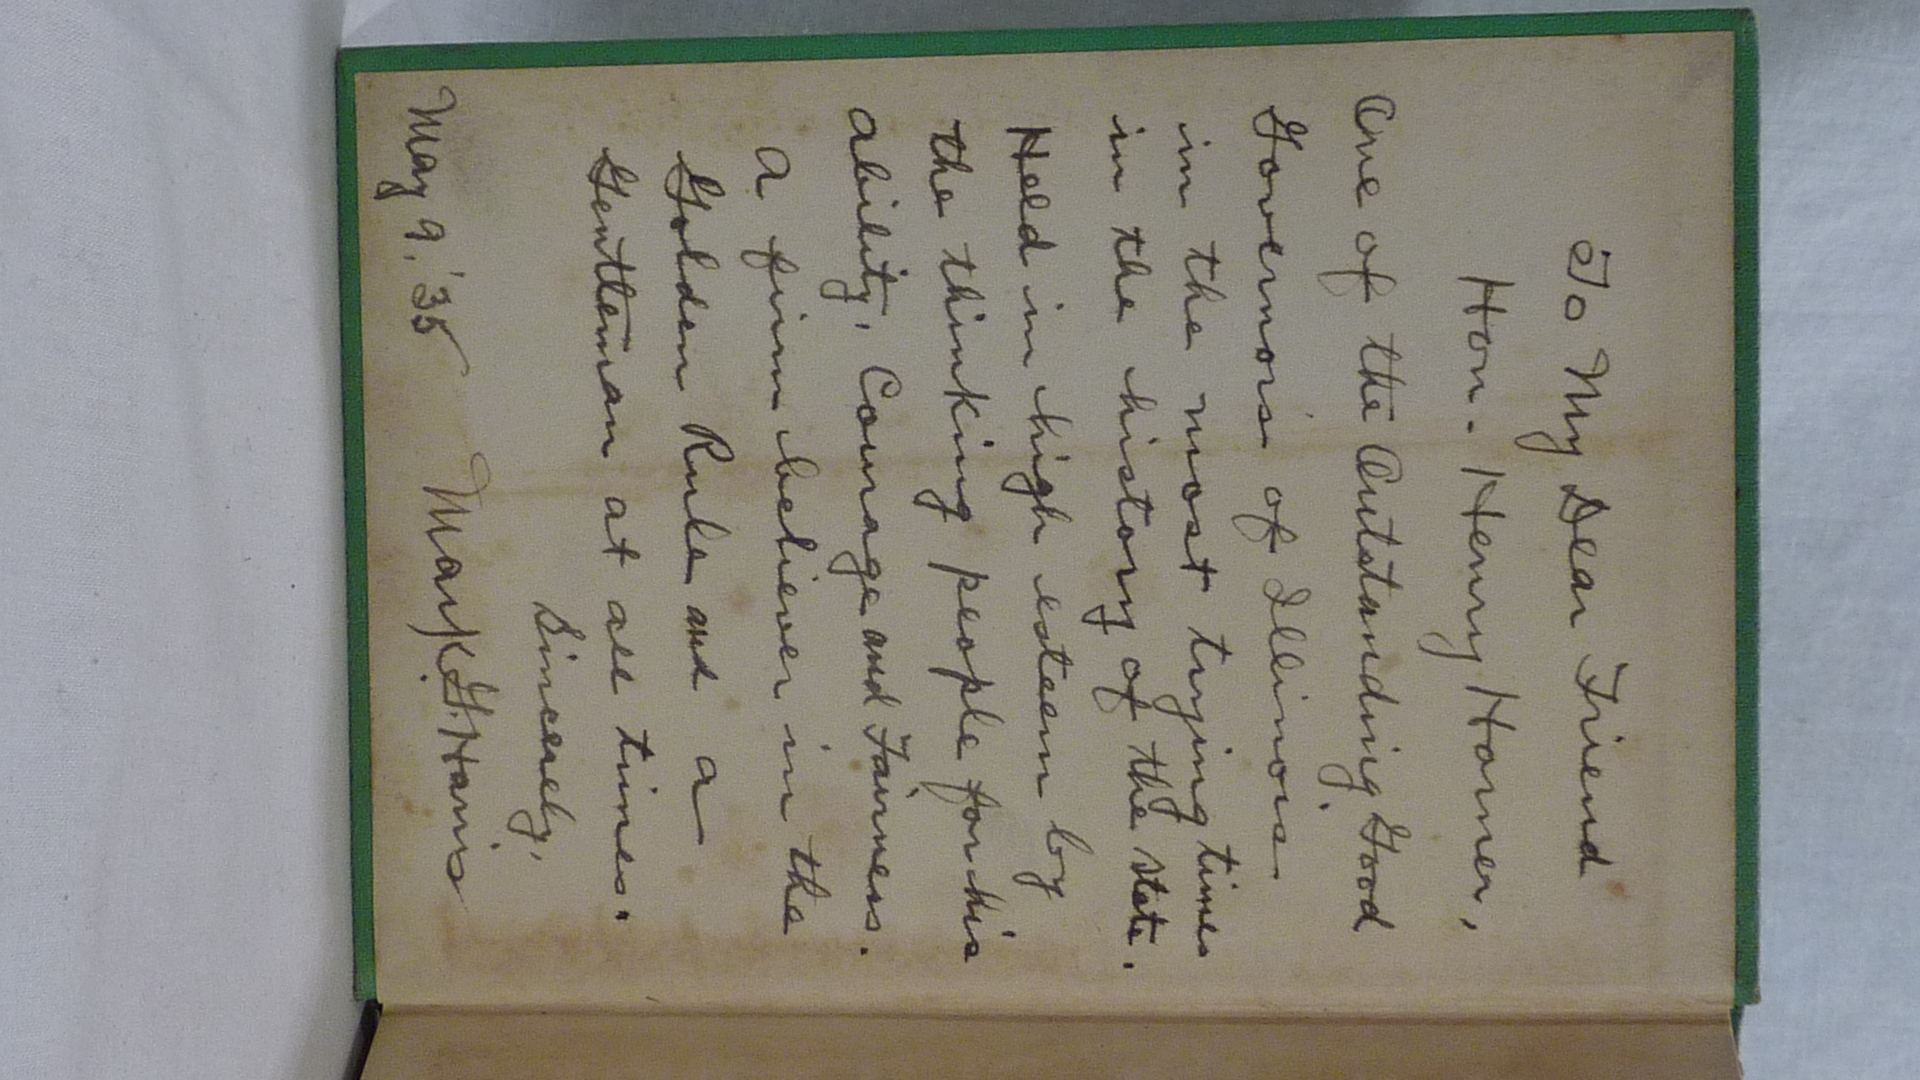 To My Dear Friend
Hon. Henry Horner,
One of the Outstanding Good
Governors of Illinois
in the most trying times
in the history of the state.
Held in high esteem by
the thinking people for his
ability, Courage and Fairness.
A firm believer in the
Golden Rule and a
Gentleman at all times.
Sincerely,
May 9, '35 Mark G. Harris